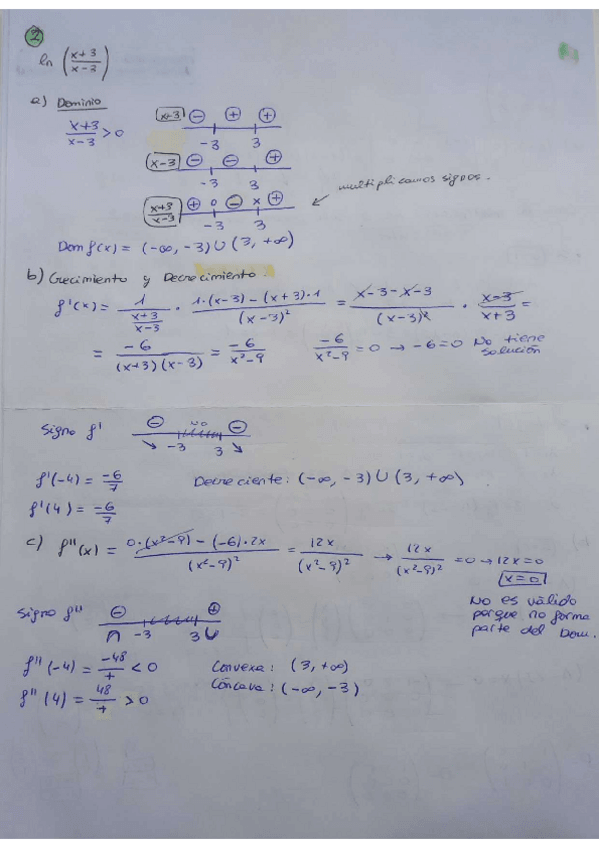 2
ln (x+3/x-3)
a) Dominio
x+3/x-3 > 0
x+3 ⊖ ⊕ ⊕
-3 3
x-3 ⊖ ⊖ ⊕
-3 3
x+3/x-3 ⊕ o ⊖ x ⊕
-3 3
multiplicamos signos.
Dom f(x) = (-∞, -3) ∪ (3, +∞)
b) Crecimiento y Decrecimiento.
f'(x) = 1/(x+3/x-3) · 1·(x-3) - (x+3)·1/(x-3)² = x-3-x-3/(x-3)² · x-3/x+3 =
= -6/(x+3)(x-3) = -6/x²-9 -6/x²-9 = 0 → -6=0 No tiene solución
Signo f' ⊖ NO ⊖
↘ -3 3 ↘
f'(-4) = -6/7 Decreciente: (-∞, -3) ∪ (3, +∞)
f'(4) = -6/7
c) f''(x) = 0·(x²-9) - (-6)·2x/(x²-9)² = 12x/(x²-9)² → 12x/(x²-9)² = 0 → 12x=0
x=0
No es válido
porque no forma
parte del Dom.
Signo f'' ⊖ ⊕
∩ -3 3 ∪
f''(-4) = -48/+ < 0 Convexa: (3, +∞)
f''(4) = 48/+ > 0 Cóncava: (-∞, -3)